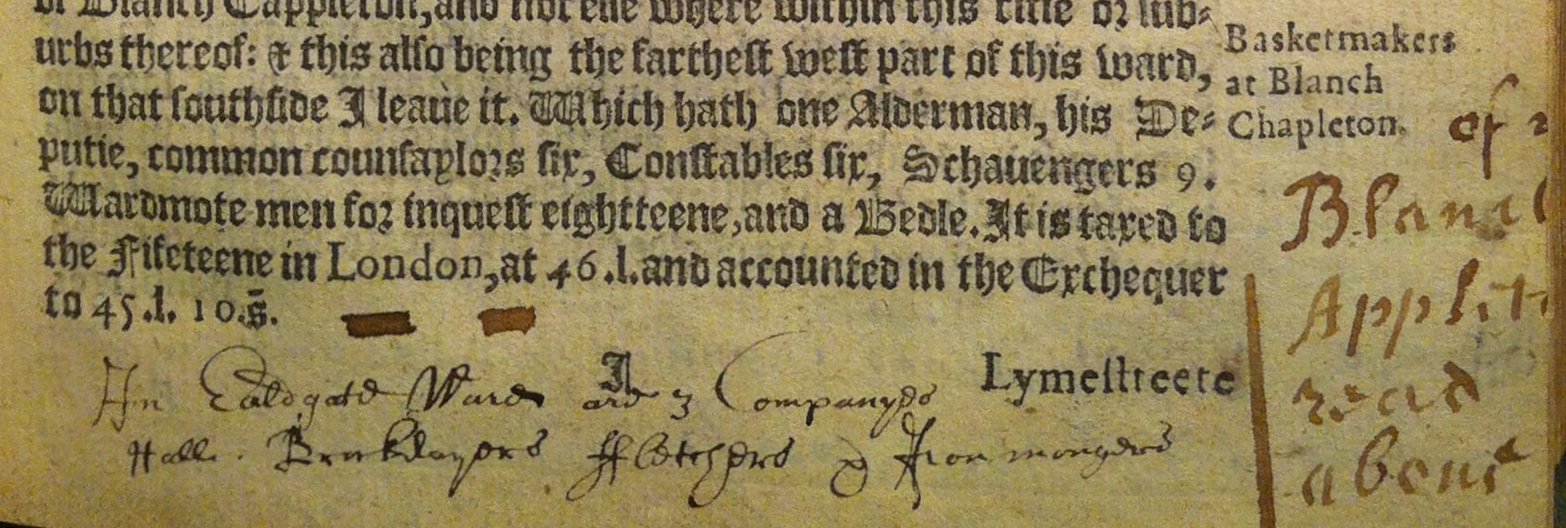 of Blanch Cappleton, and not else where within this citie or sub-
urbs thereof: & this also being the farthest west part of this ward,
on that southside I leaue it. Which hath one Alderman, his De-
putie, common counsaylors six, Constables six, Schauengers 9.
Wardmote men for inquest eightteene, and a Bedle. It is taxed to
the Fifeteene in London, at 46.l. and accounted in the Exchequer
to 45.l. 10.s.
Basketmakers
at Blanch
Chapleton.
of
Blanc
Applet
read
aboue
In Ealdgate Ward ard 3 Companyes
Halls. Bricklayers ffletchers & Iron mongers
I
Lymestreete